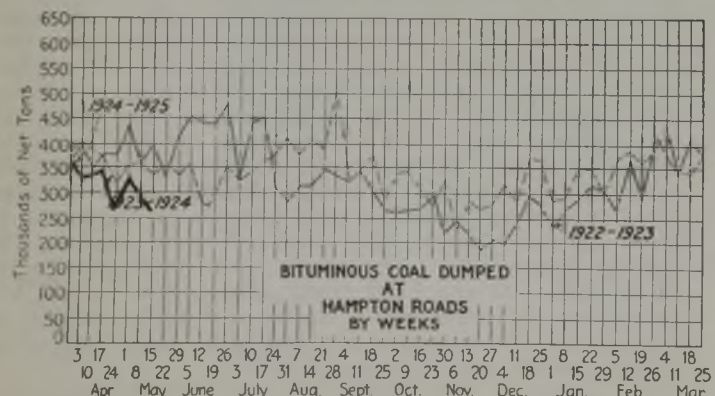 650
600
550
500
450
400
350
300
250
200
150
100
50
0
Thousands of Net Tons
1924-1925
1923-1924
1922-1923
BITUMINOUS COAL DUMPED
AT
HAMPTON ROADS
BY WEEKS
3 17 1 15 29 12 26 10 24 7 21 4 18 2 16 30 13 27 11 25 8 22 5 19 4 18
10 24 8 22 5 19 3 17 31 14 28 11 25 9 23 6 20 4 18 1 15 29 12 26 11 25
Apr May June July Aug. Sept. Oct. Nov. Dec. Jan Feb Mar